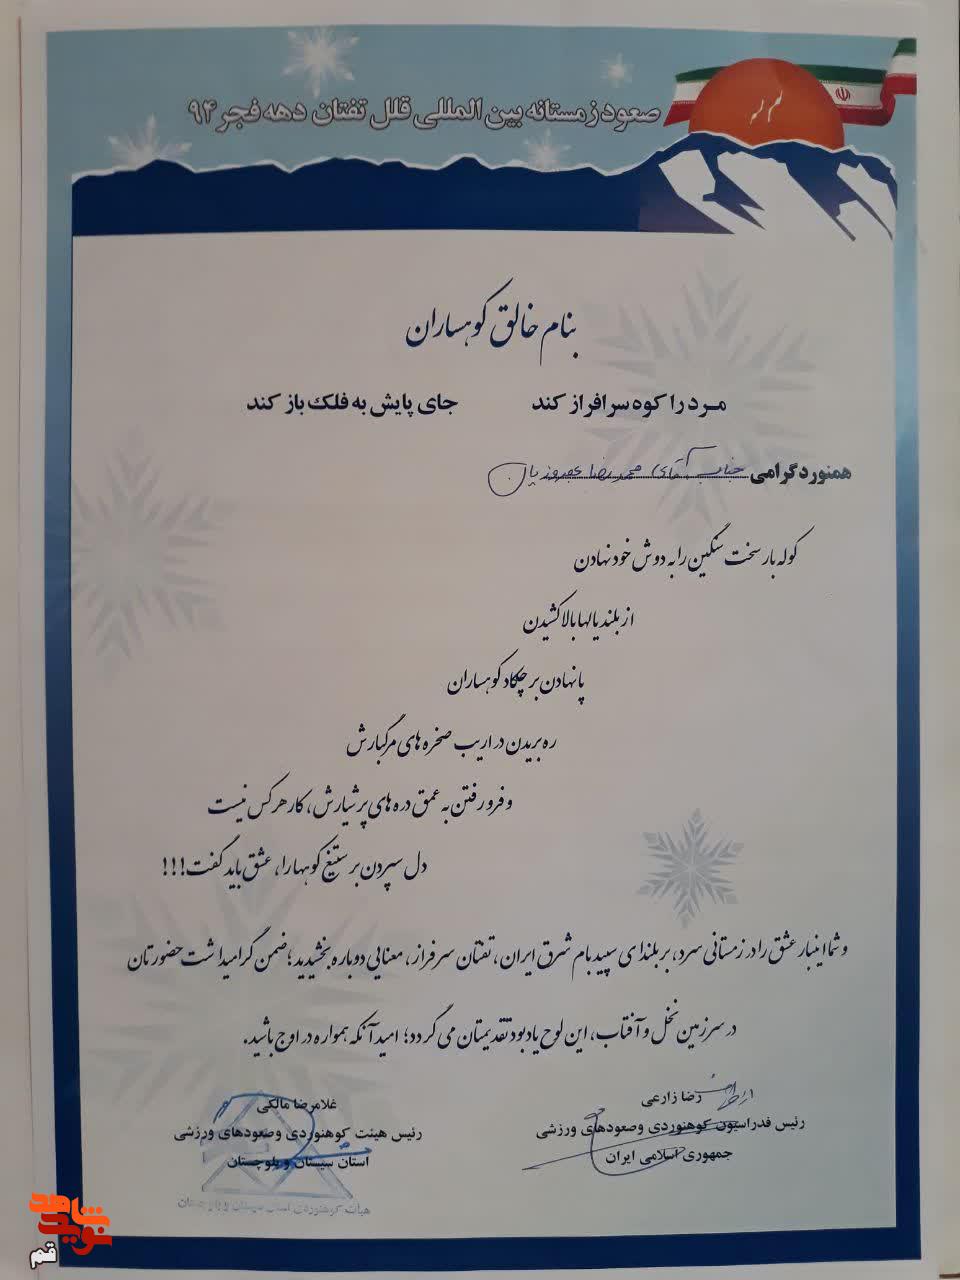 صعود زمستانه بین المللی قلل تفتان دهه فجر ۹۴
بنام خالق کوهساران
مرد را کوه سرافراز کند جای پایش به فلک باز کند
همنورد گرامی جناب آقای محمدرضا بهروزیان
کوله بار سخت سنگین را به دوش خود نهادن
از بلندیالها بالا کشیدن
پا نهادن بر چکاد کوهساران
ره بریدن در اریب صخره های مرگبارش
و فرو رفتن به عمق دره های پرشیارش، کار هرکس نیست
دل سپردن بر ستیغ کوهها را، عشق باید گفت!!!
و شما اینبار عشق را در زمستانی سرد، بر بلندای سپید بام شرق ایران، تفتان سرفراز، معنایی دوباره بخشیدید؛ ضمن گرامیداشت حضورتان
در سرزمین نخل و آفتاب، این لوح یادبود تقدیمتان می گردد؛ امید آنکه همواره در اوج باشید.
رضا زارعی
رئیس فدراسیون کوهنوردی وصعودهای ورزشی
جمهوری اسلامی ایران
غلامرضا مالکی
رئیس هیئت کوهنوردی وصعودهای ورزشی
استان سیستان و بلوچستان
هیأت کوهنوردی استان سیستان و بلوچستان
نوید شاهد
قم